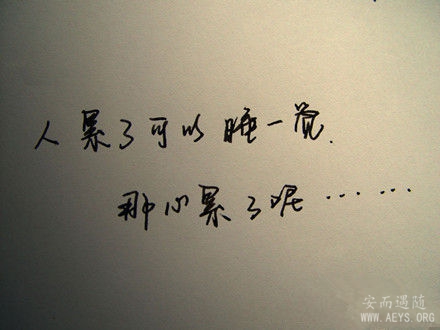 人累了可以睡一觉.
那心累了呢……
安而遇随
WWW.AEYS.ORG